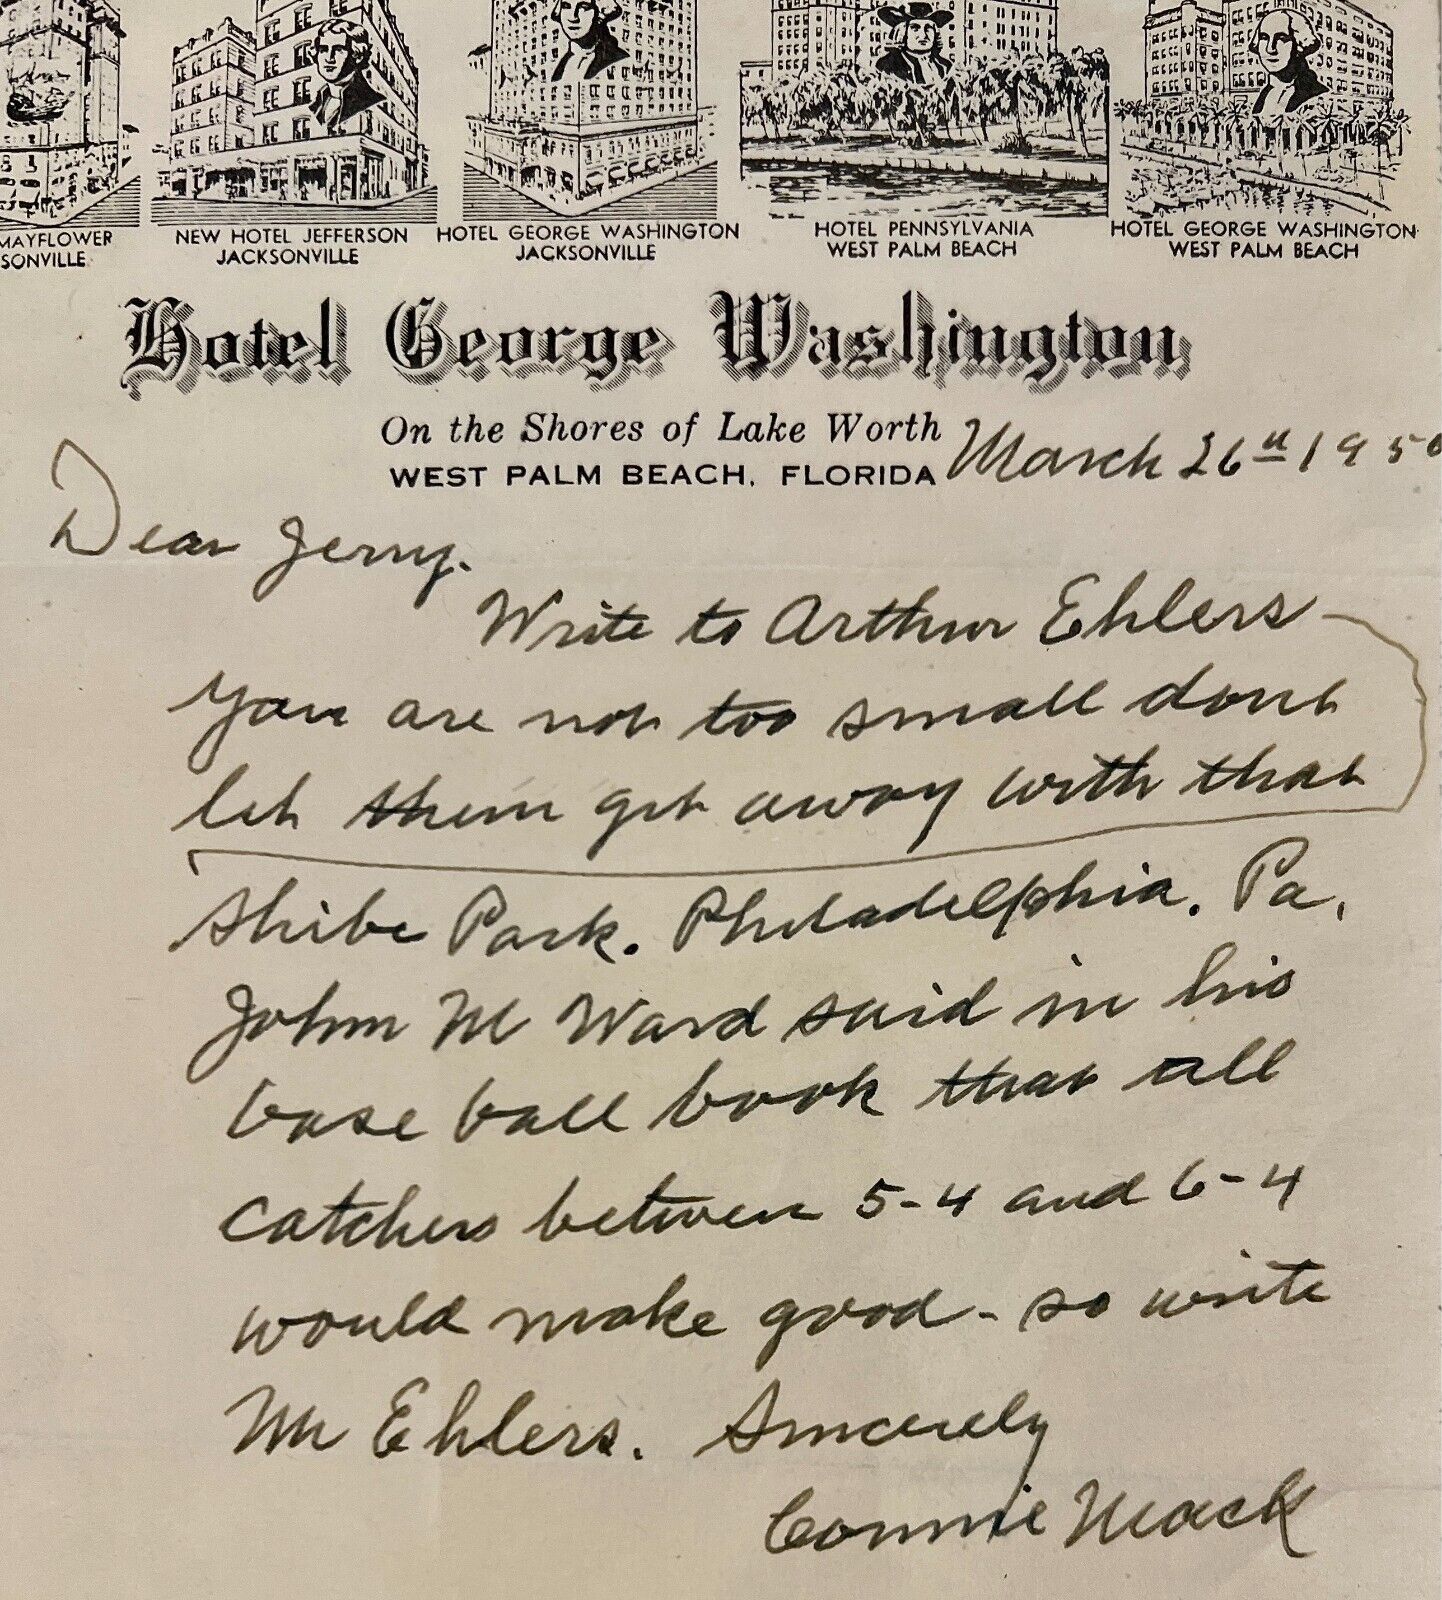 MAYFLOWER
SONVILLE
NEW HOTEL JEFFERSON
JACKSONVILLE
HOTEL GEORGE WASHINGTON
JACKSONVILLE
HOTEL PENNSYLVANIA
WEST PALM BEACH
HOTEL GEORGE WASHINGTON
WEST PALM BEACH
Hotel George Washington
On the Shores of Lake Worth
WEST PALM BEACH, FLORIDA
March 26th 1950
Dear Jerry.
Write to Arthur Ehlers
you are not too small dont
let them get away with that
Shibe Park. Philadelphia. Pa.
John M Ward said in his
base ball book that all
catchers between 5-4 and 6-4
would make good - so write
Mr Ehlers. Sincerely
Connie Mack